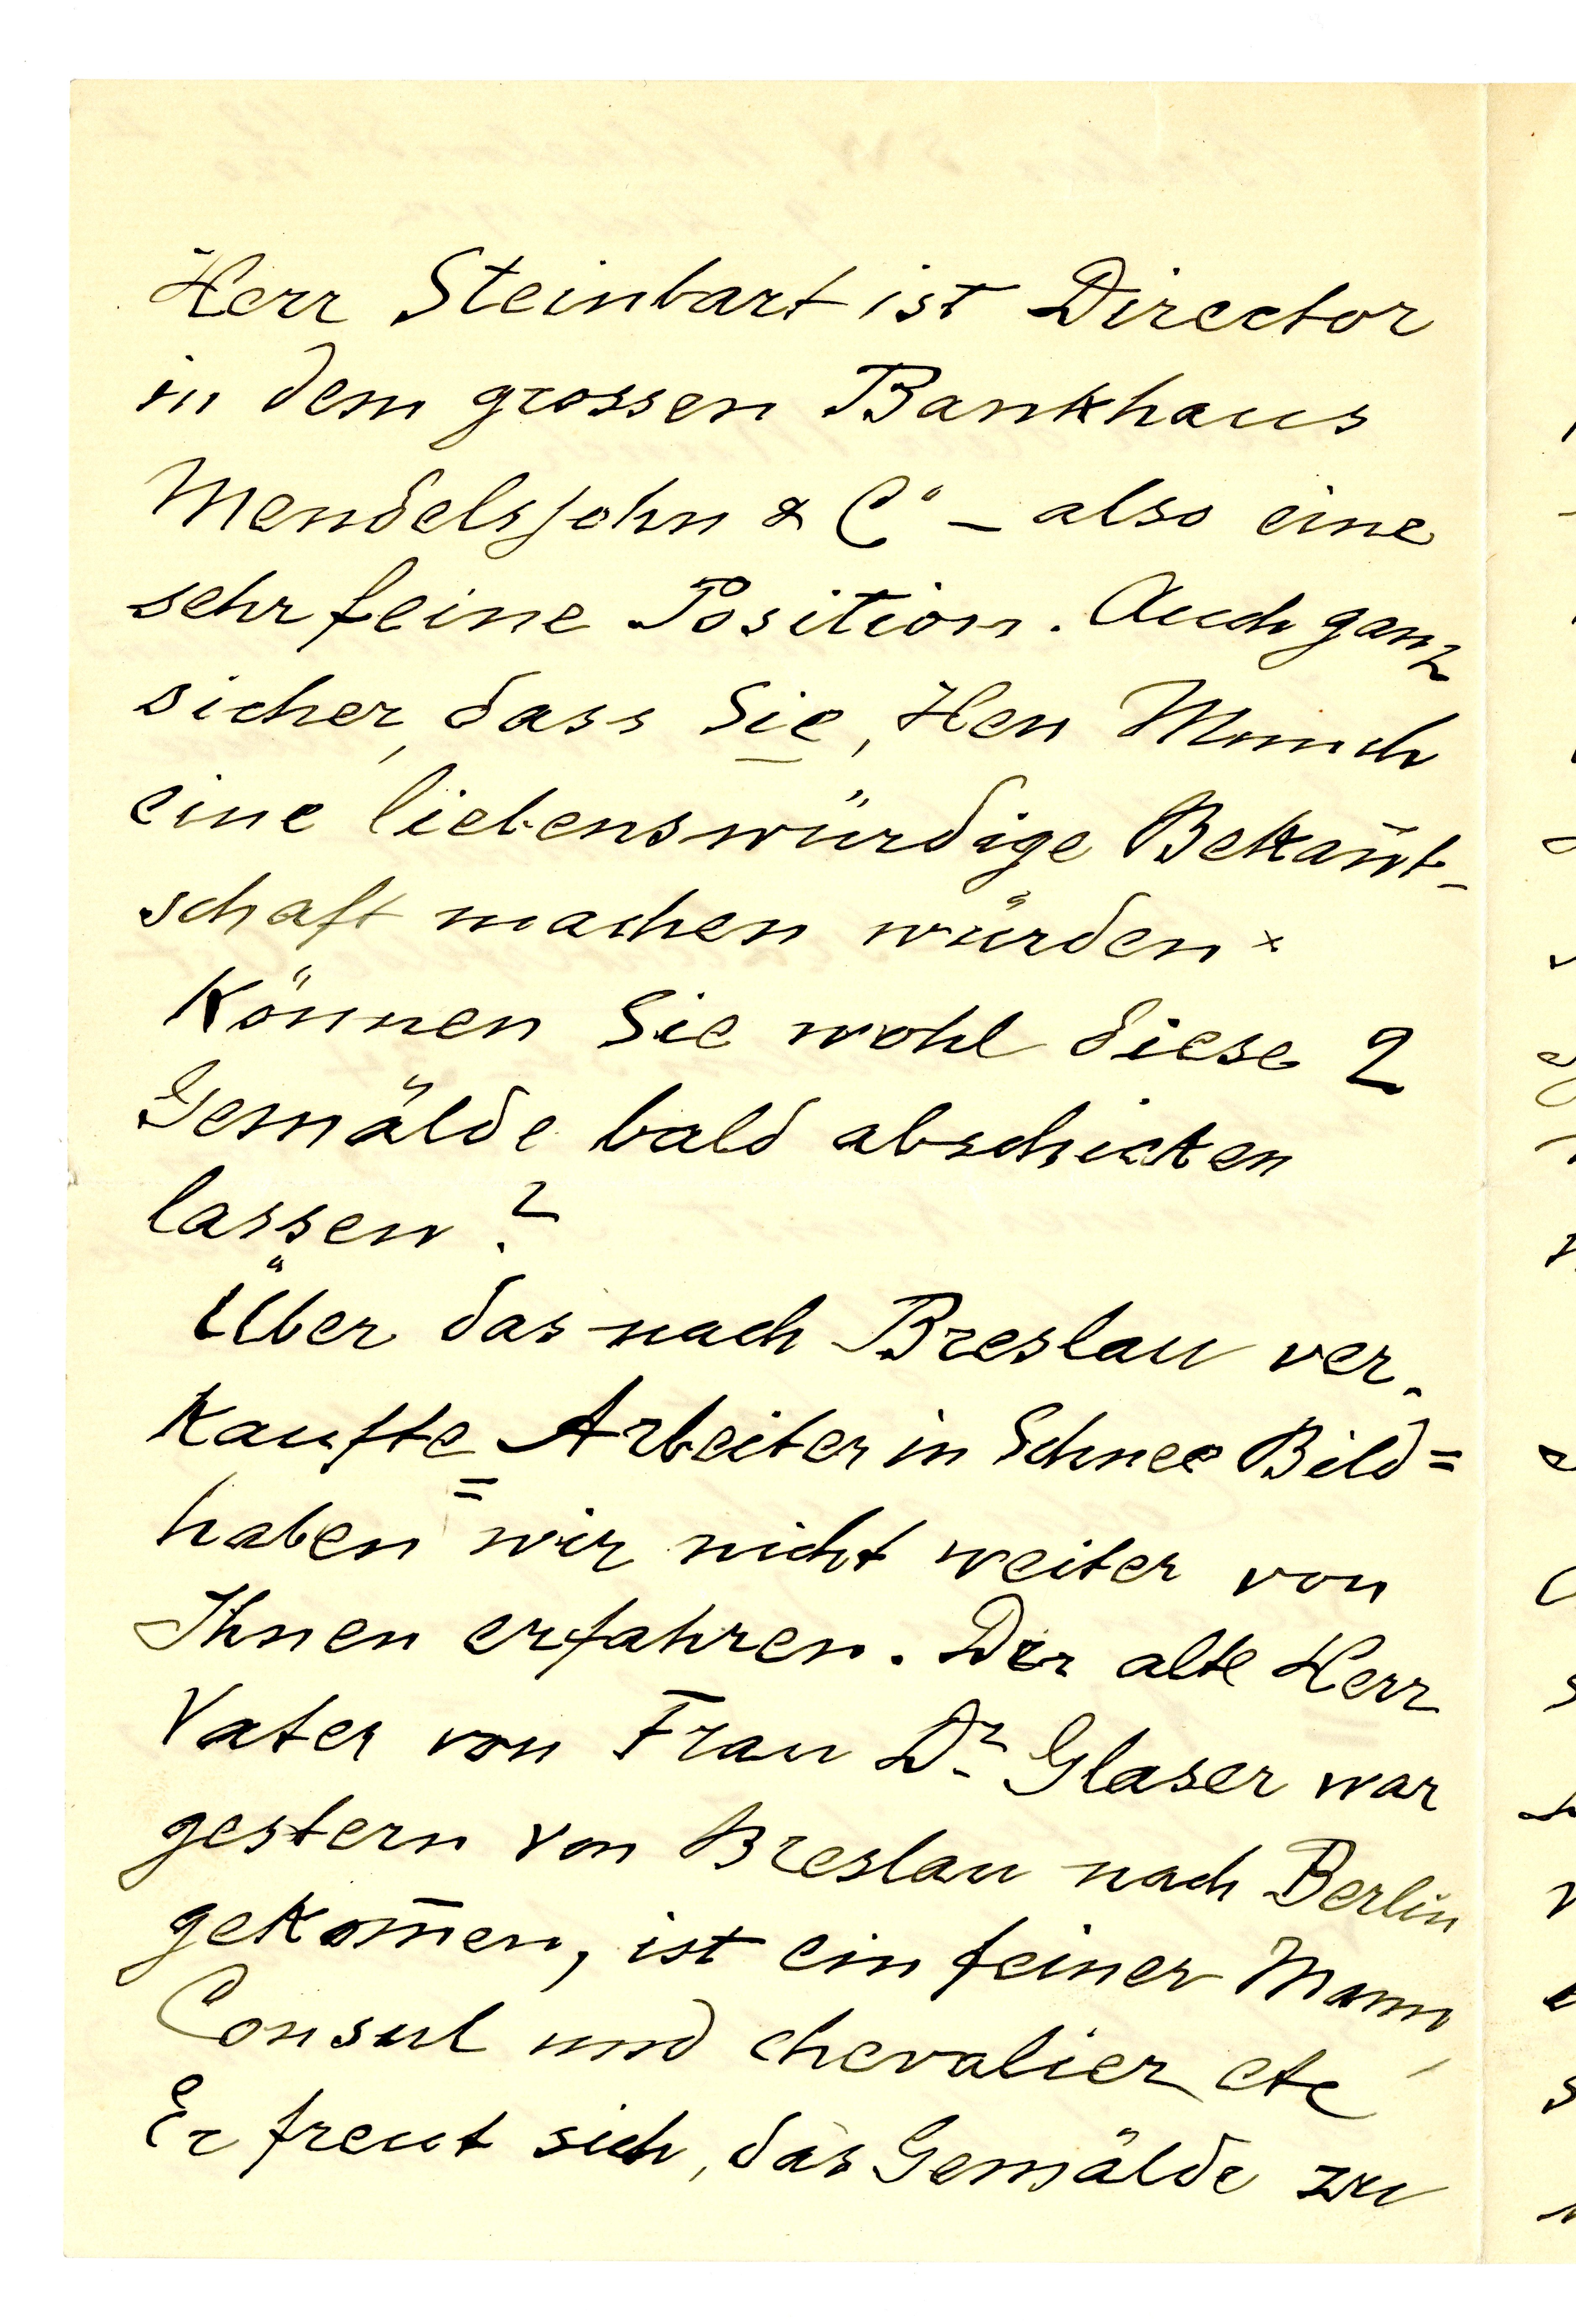 Herr Steinbart ist Director
in dem grossen Bankhaus
Mendelssohn & Co – also eine
sehr feine Position. Auch ganz
sicher, dass Sie, Herr Munch
eine liebenswürdige Bekan̄t-
schaft machen würden ×
Können Sie wohl diese 2
Gemälde bald abschicken
lassen?
Über das nach Breslau ver-
kaufte = Arbeiter in Schnee Bild =
haben wir nicht weiter von
Ihnen erfahren. Der alte Herr
Vater von Frau Dr Glaser war
gestern von Breslau nach Berlin
gekom̄en, ist ein feiner Mann,
Consul und chevalier etc
Er freut sich, das Gemälde zu